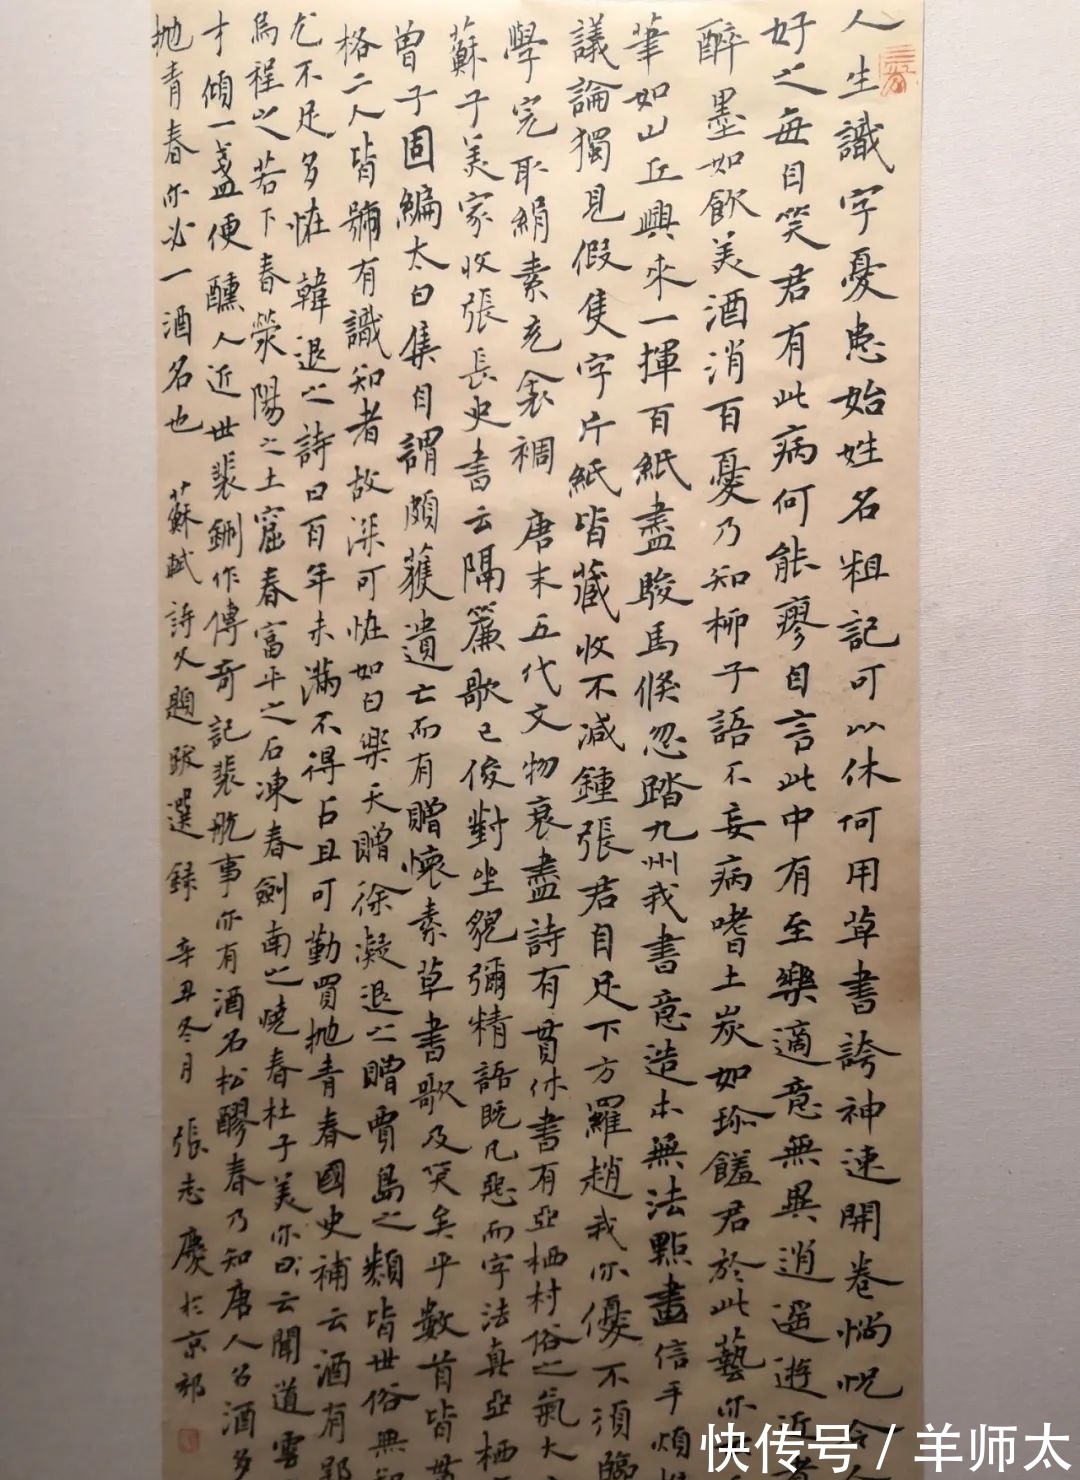 人生識字憂患始姓名粗記可以休何用草書誇神速開卷惝怳令
好之每自笑君有此病何能瘳自言此中有至樂適意無異逍遙遊近者
醉墨如飲美酒消百憂乃知柳子語不妄病嗜土炭如珍饈君於此藝亦
筆如山丘興來一揮百紙盡駿馬倏忽踏九州我書意造本無法點畫信手煩
議論獨見假隻字片紙皆藏收不減鍾張君自足下方羅趙我亦優不須臨
學完取絹素充衾裯 唐末五代文物衰盡詩有貫休書有亞栖村俗之氣大
蘇子美家收張長史書云隔簾歌已俊對坐貌彌精語既凡惡而字法真亞栖
曾子固編太白集自謂頗獲遺亡而有贈懷素草書歌及笑矣乎數首皆貫
格二人皆號有識知者故深可怪如白樂天贈徐凝退之贈賈島之類皆世俗無知
尤不足多怪 韓退之詩曰百年未滿不得占且可勤買拋青春國史補云酒有郢
烏程之若下春滎陽之土窟春富平之石凍春劍南之燒春杜子美亦曰云聞道雲
才傾一盞便醺人近世裴鉶作傳奇記裴航事亦有酒名松醪春乃知唐人名酒多
拋青春亦必一酒名也 蘇軾詩文題跋選錄 辛丑冬月 張志慶於京郊
快传号 / 羊师太